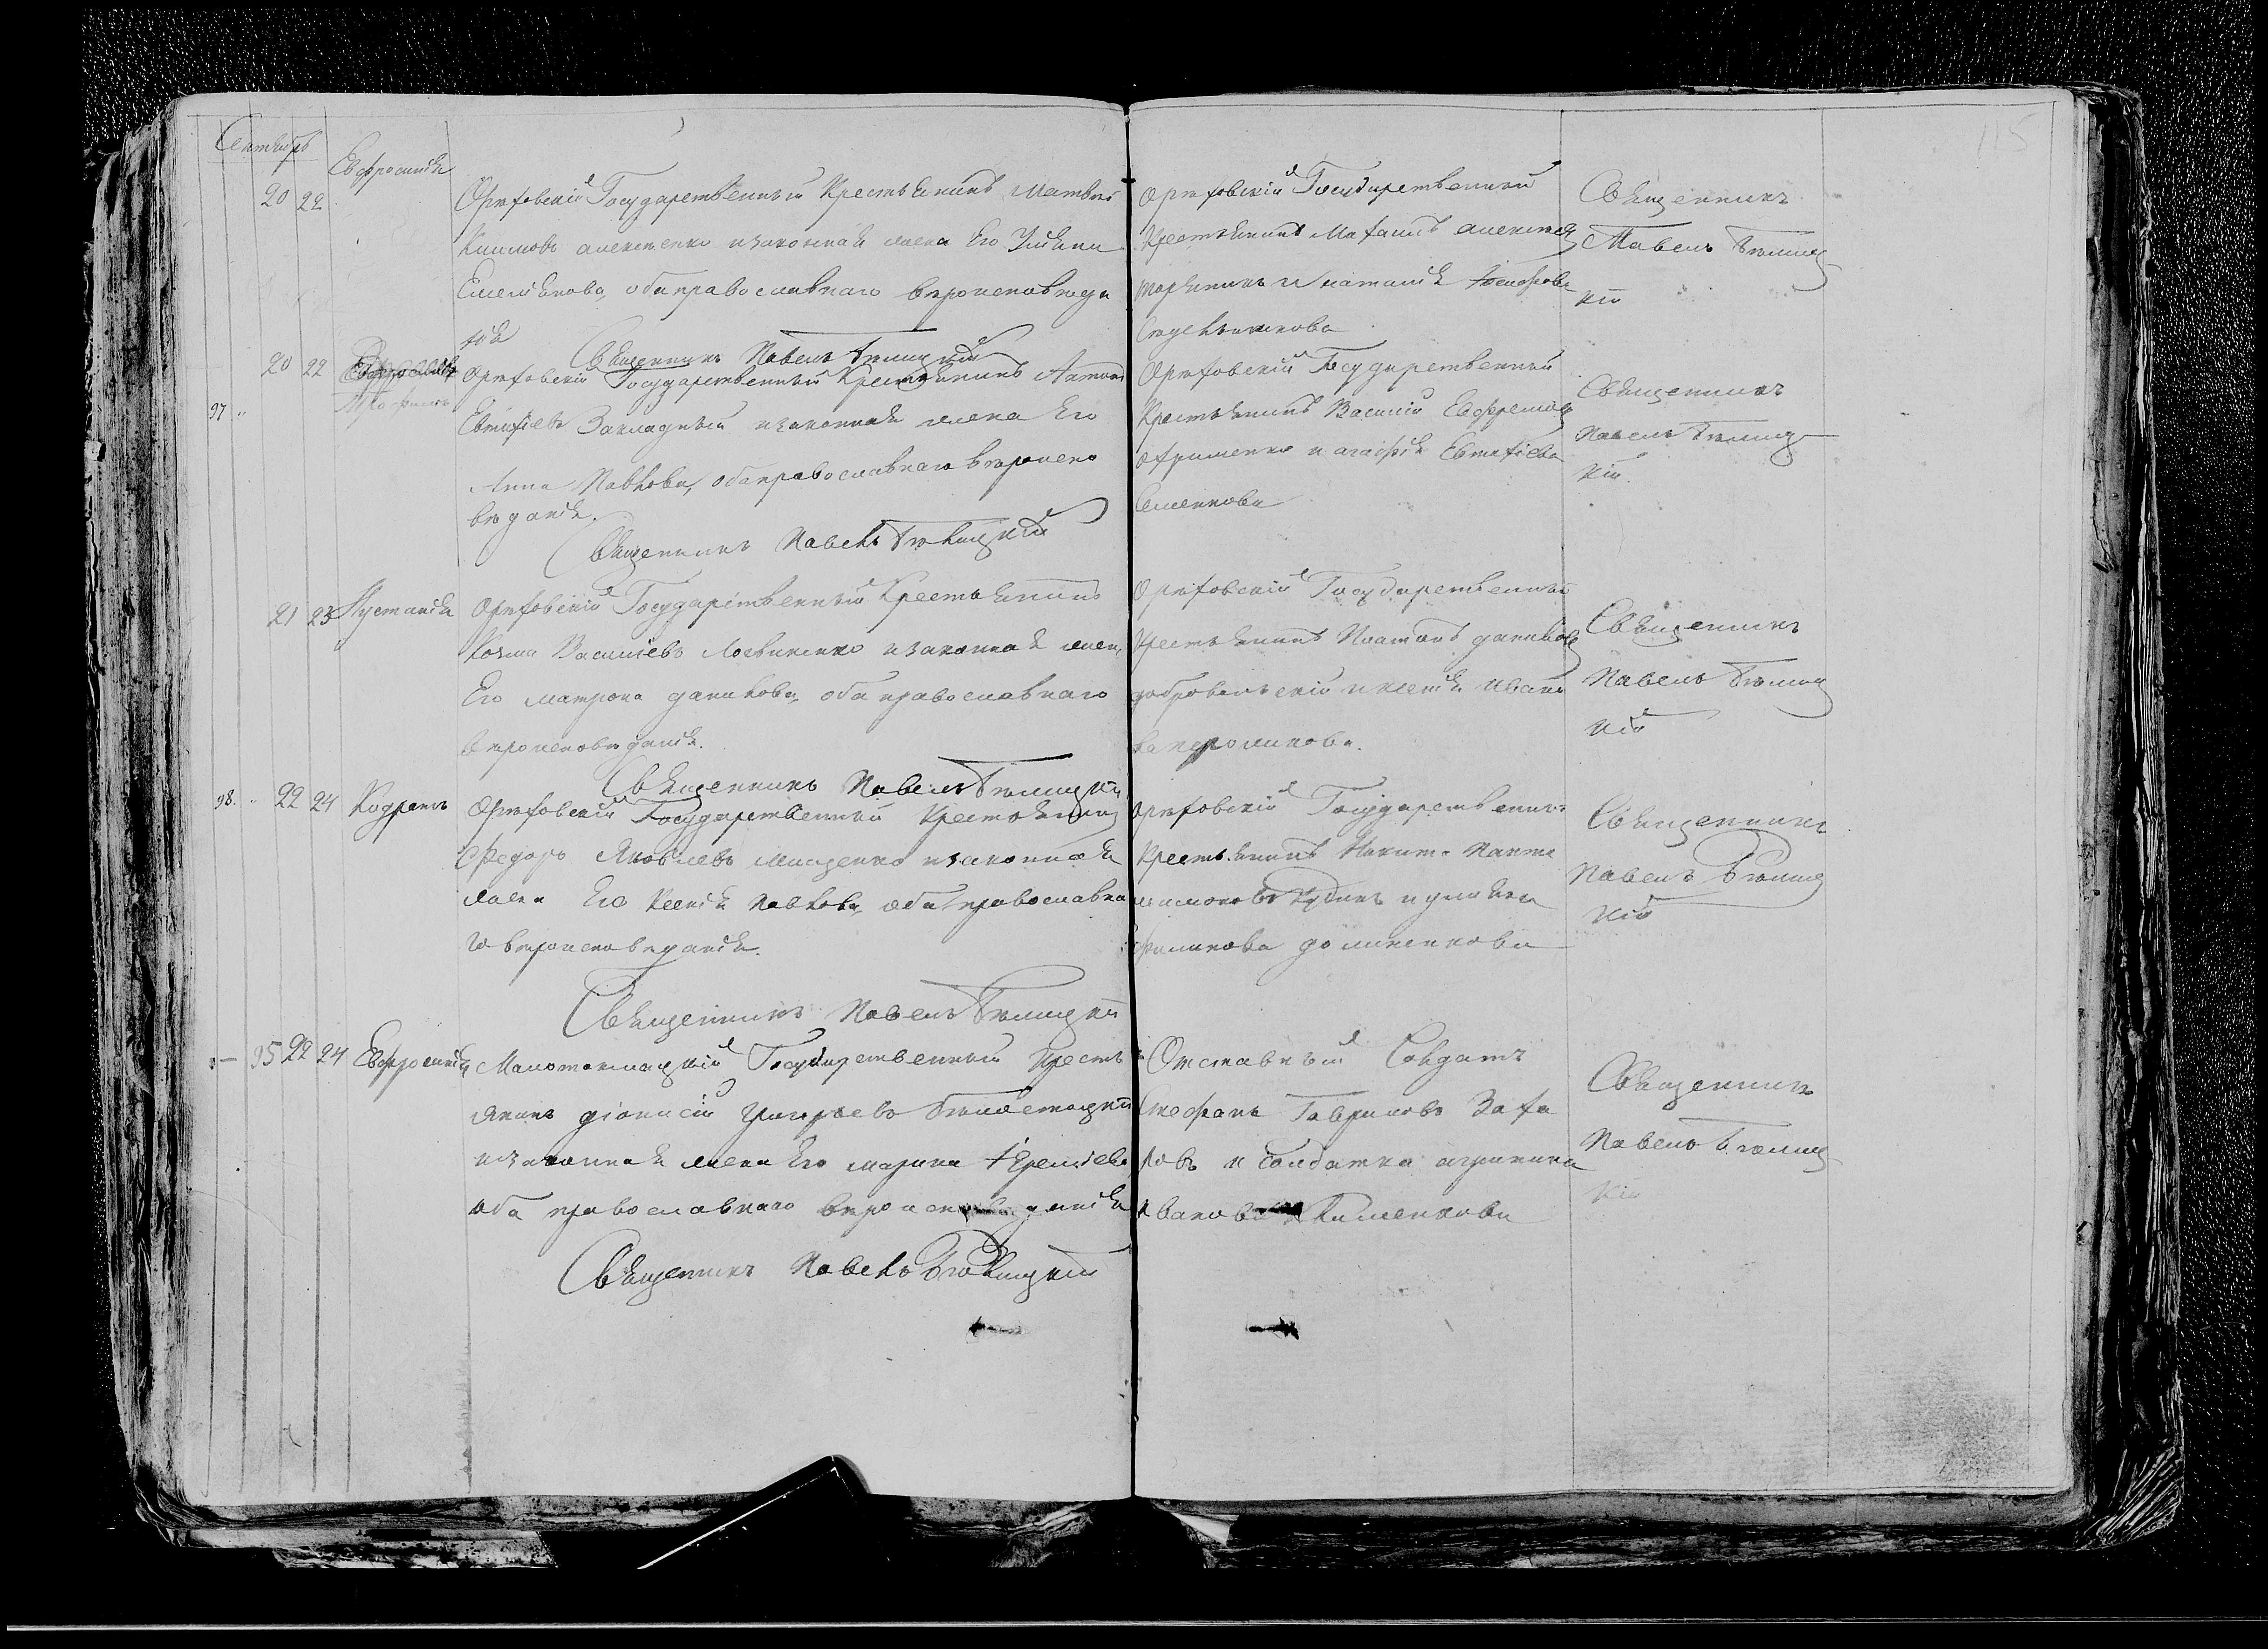 115
Сентябрь
20 22 Евфросинія
Орѣховскій Государственный Крестьянинъ Матвей
Климовъ и законная жена Его Уліяна
Емеліанова, оба православнаго вероисповеда
нія
Священникъ Павелъ Бѣлицкій
Орѣховскій Государственный
Крестьянинъ
и Наталія
Священникъ
Павелъ Бѣлиц
кій
97 20 22 Трофимъ
Орѣховскій Государственный Крестьянинъ Антонъ
Евтихіевъ Закладный и законная жена Его
Анна Павлова, оба православнаго вѣроиспо
вѣданія.
Священникъ Павелъ Бѣлицкій
Орѣховскій Государственный
Крестьянинъ Василій Евфремовъ
Охрименко и Агафія Евтихіева
Семенкова
Священникъ
Павелъ Бѣлиц
кій.
21 23 Іустинія
Орѣховскій Государственный Крестьянинъ
Козма Василіевъ Логвиненко и законная жена
Его Матрона Данилова, оба православнаго
вероисповѣданія.
Священникъ Павелъ Бѣлицкій
Орѣховскій Государственный
Крестьянинъ Платонъ Даниловъ
Добровольскій и Ксенія Ивано
ва
Священникъ
Павелъ Бѣлиц
кій
98. 22 24 Кодратъ
Орѣховскій Государственный Крестьянинъ
Федоръ Яковлевъ Мищенко и законная
жена Его Ксенія Павлова, оба православна
го вероисповеданія.
Священникъ Павелъ Бѣлицкій
Орѣховскій Государственный
Крестьянинъ Никита Панте
лимоновъ и Уліяна
Филипова
Священникъ
Павелъ Бѣлиц
кій
95 22 24 Евфросинія
Малотокмацкій Государственный Кресть
янинъ Діонисій Григорьевъ
и законная жена Его Марина
оба православнаго вероисповеданія
Священникъ Павелъ Бѣлицкій
Отставный Солдатъ
Стефанъ Гавриловъ Заха
ровъ и Солдатка Агрипина
Иванова Клименкова
Священникъ
Павелъ Бѣлиц
кій